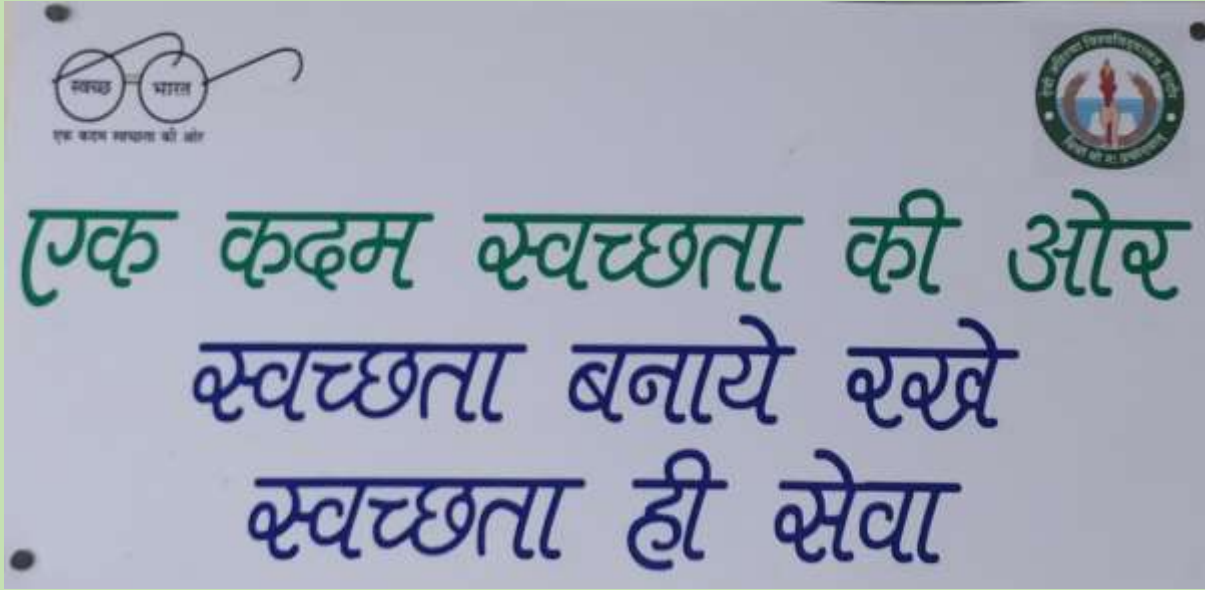 स्वच्छ भारत
एक कदम स्वच्छता की ओर
देवी अहिल्या विश्वविद्यालय, इन्दौर
एक कदम स्वच्छता की ओर
स्वच्छता बनाये रखे
स्वच्छता ही सेवा